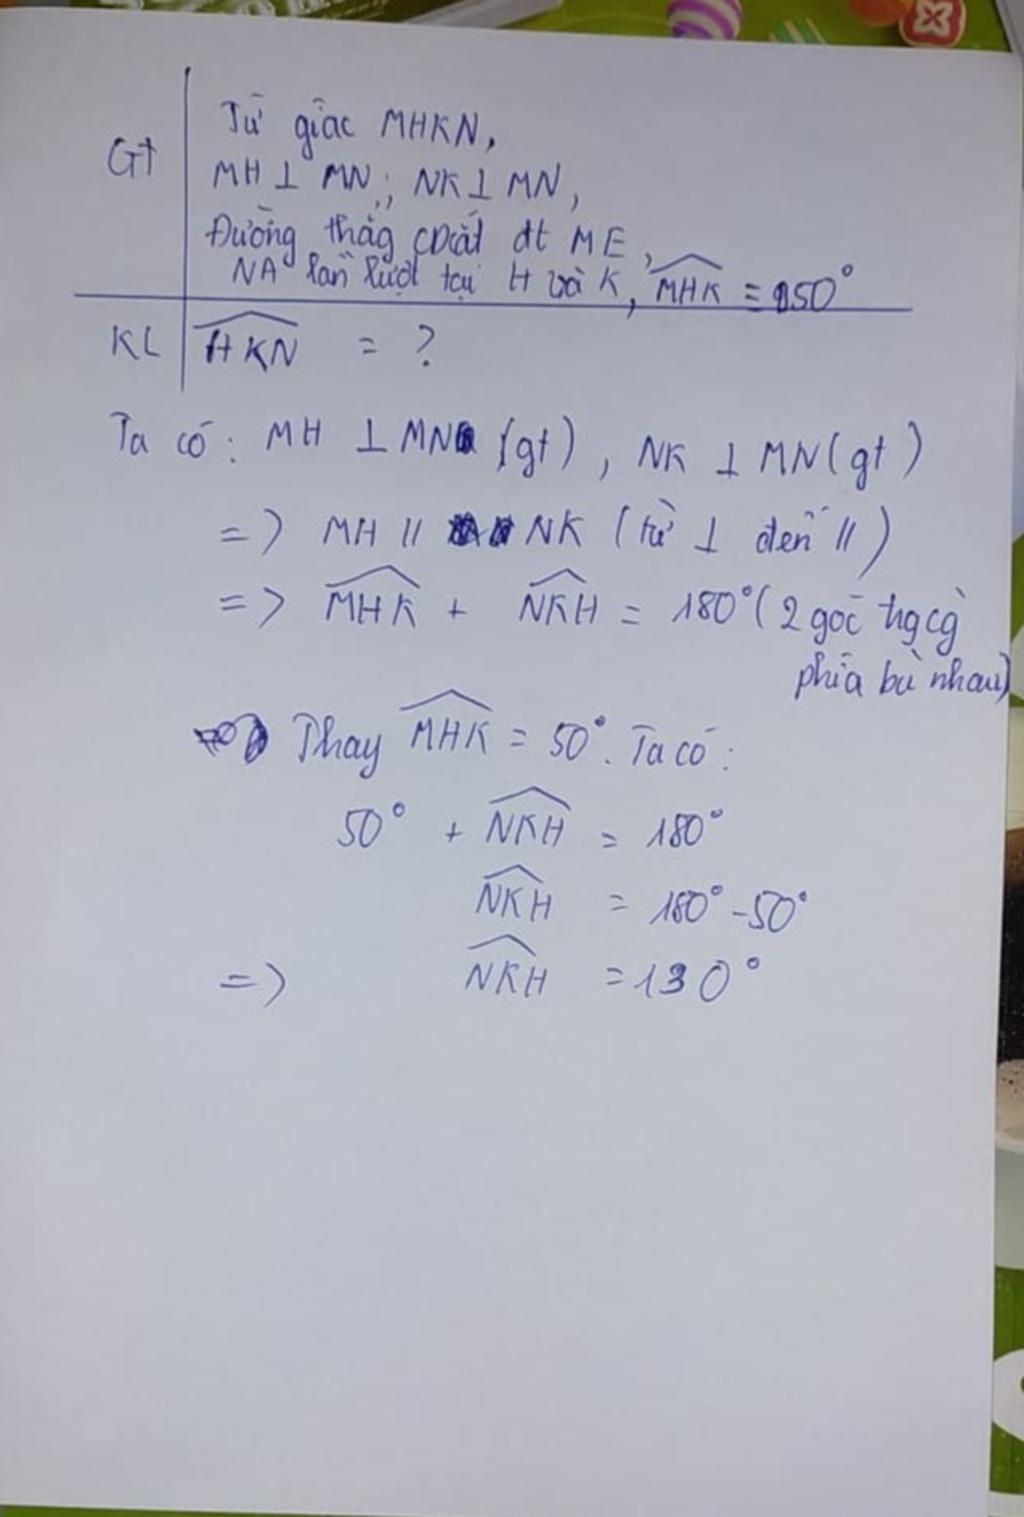 GT Tứ giác MHKN,
MH ⊥ MN; NK ⊥ MN,
Đường thẳg CD cắt đt ME,
NA lần lượt tại H và K, MHK = 50°
KL HKN = ?
Ta có: MH ⊥ MN (gt), NK ⊥ MN (gt)
=> MH // NK (từ ⊥ đến //)
=> MHK + NKH = 180° (2 góc tgcg
phía bù nhau)
Thay MHK = 50°. Ta có:
50° + NKH = 180°
NKH = 180° - 50°
=> NKH = 130°